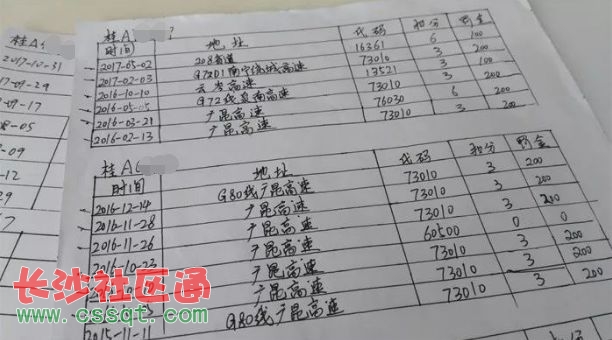 桂A
2017-10-31
桂A
时间 地址 代码 扣分 罚金
2017-05-02 208省道 16361 6 100
2017-02-03 G7201南宁绕城高速 73010 3 100
2016-10-10 云岑高速 13521 3 200
2016-05-05 G72线泉南高速 73010 3 200
2016-03-21 广昆高速 76030 6 200
2016-02-13 广昆高速 73010 3 200
桂A
时间 地址 代码 扣分 罚金
2016-12-14 G80线广昆高速 73010 3 200
2016-11-28 广昆高速 73010 3 200
2016-11-26 广昆高速 73010 3 200
2016-10-23 广昆高速 60500 0 0
广昆高速 73010 3 200
广昆高速 73010 3 200
2015-11-11 G80线广昆高速 73010 3 200
长沙社区通
www.cssqt.com